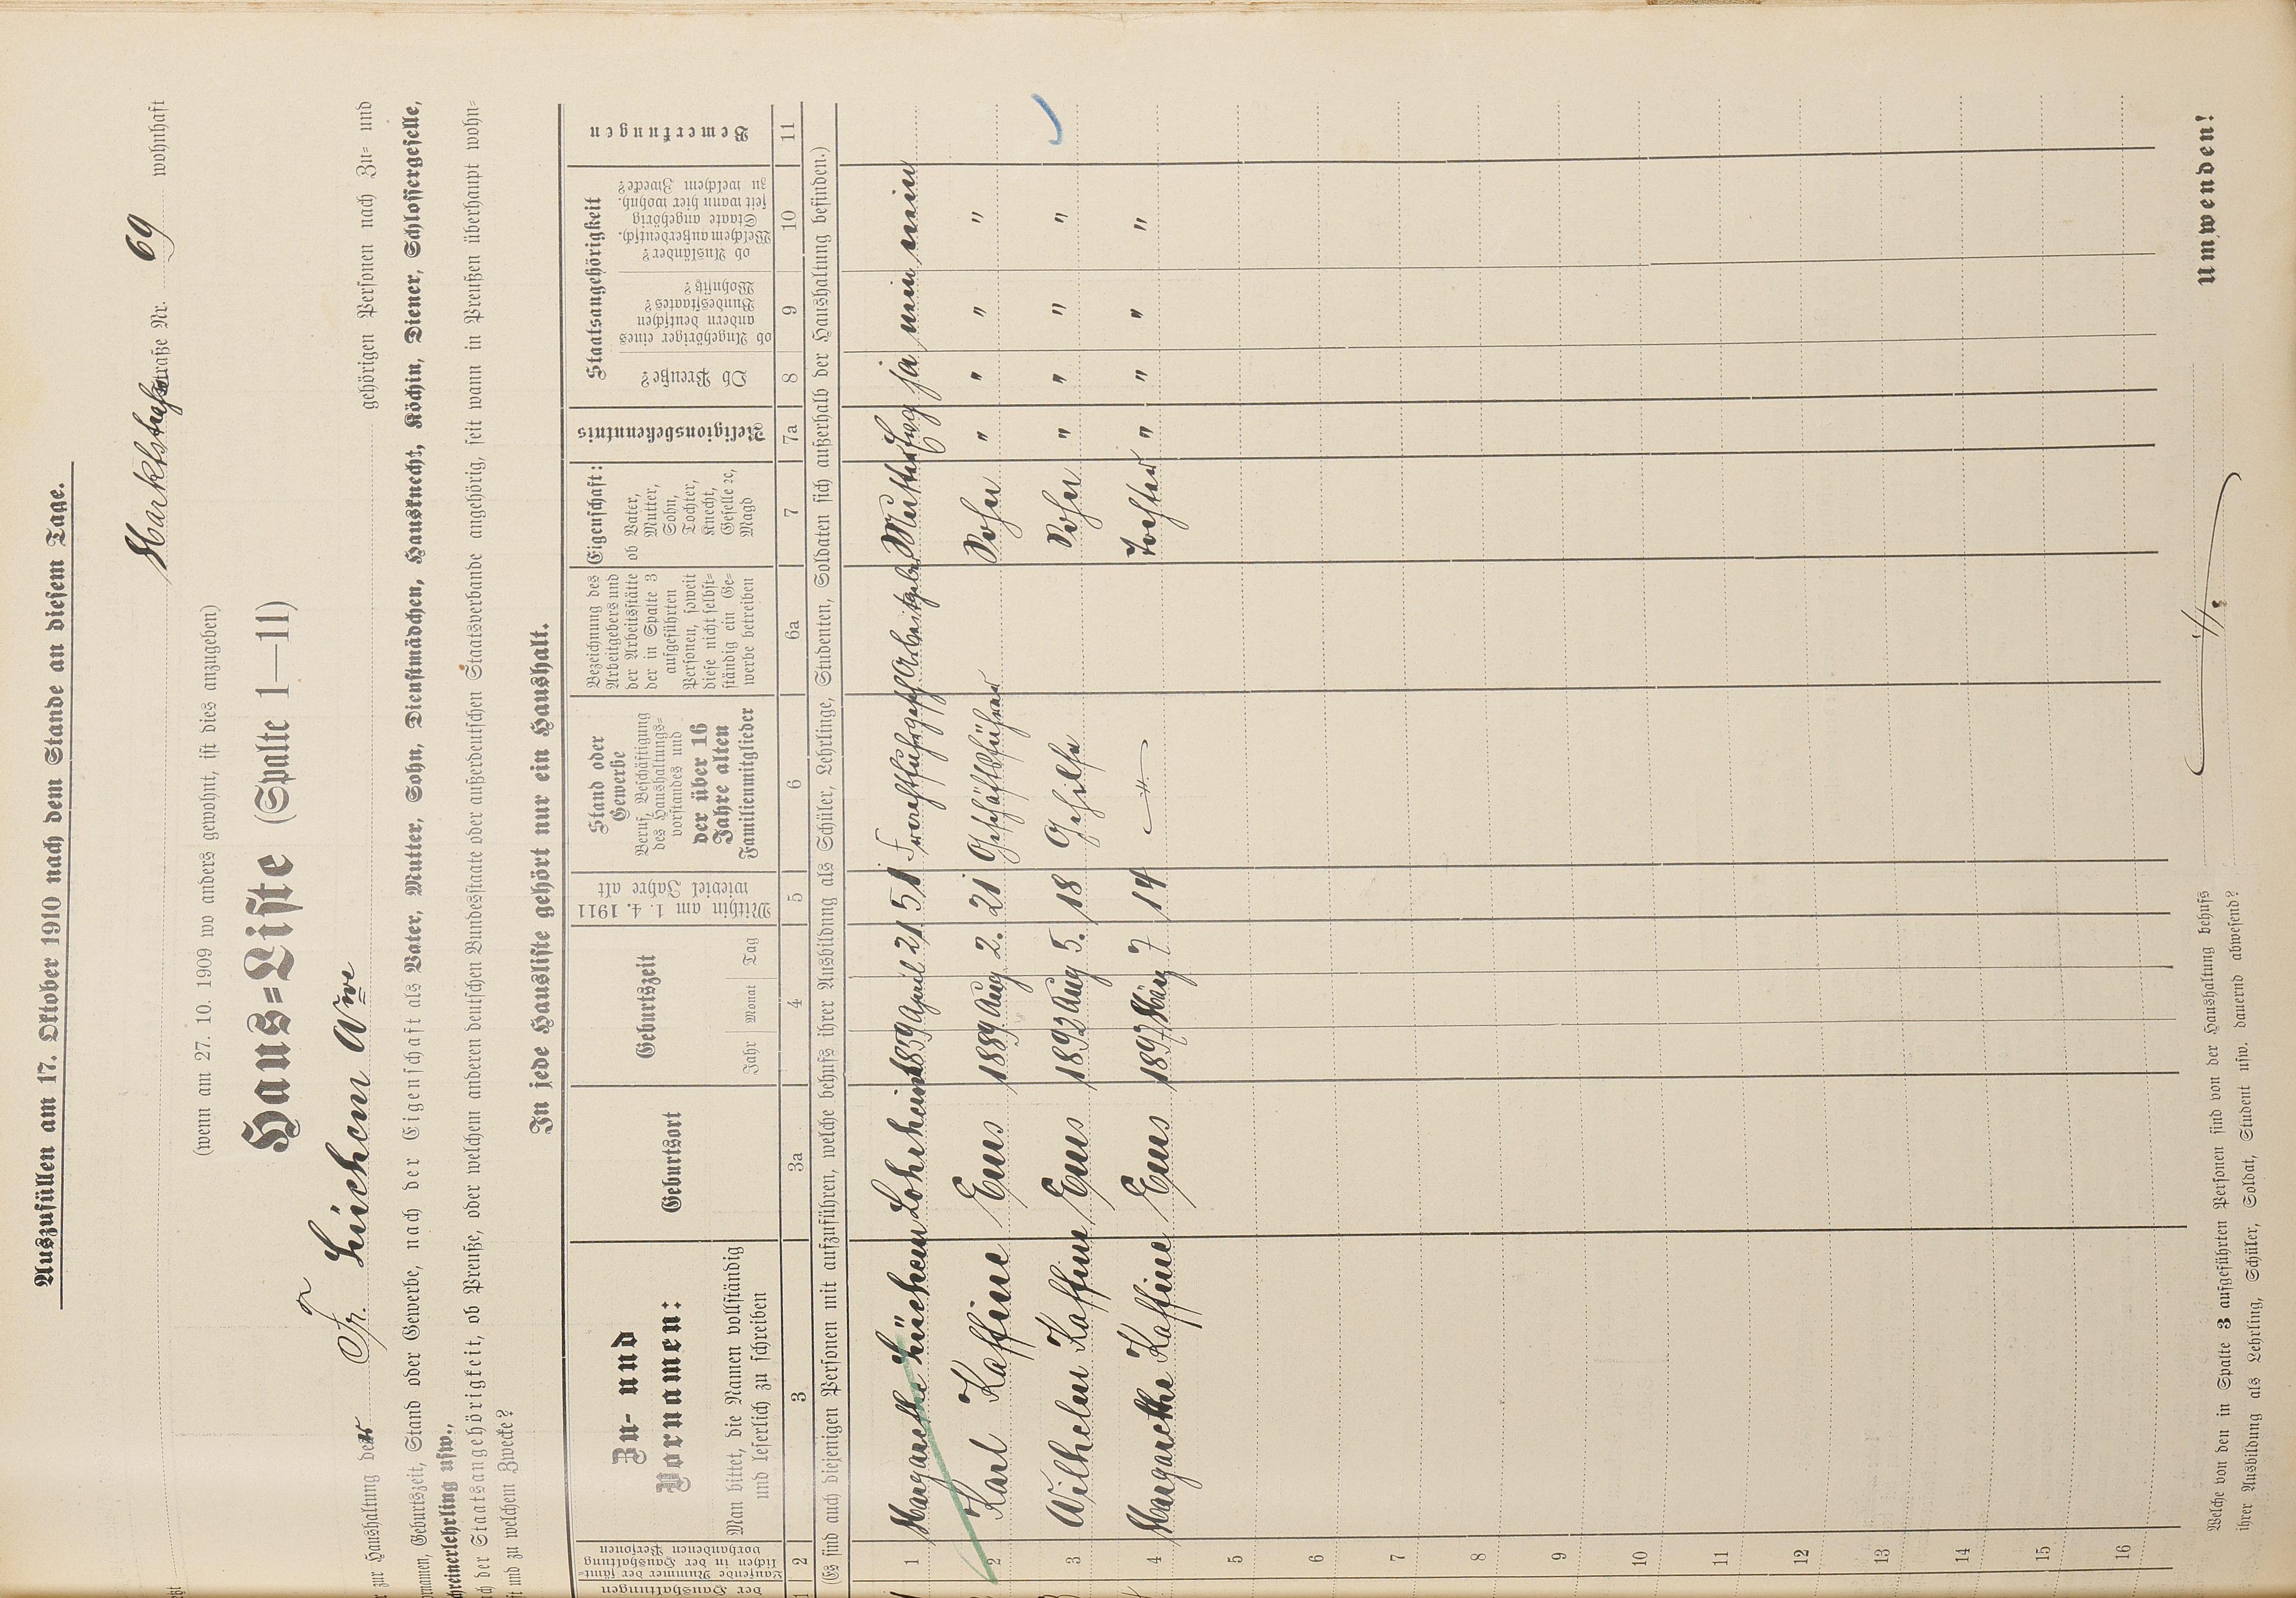 Auszufüllen am 17. Oktober 1910 nach dem Stande an diesem Tage.
Marktstraße straße Nr. 69 wohnhaft
(wenn am 27. 10. 1909 wo anders gewohnt, ist dies anzugeben)
Haus=Liste (Spalte 1—11)
zur Haushaltung der Fr. Lüchem Wwe gehörigen Personen nach Zu= und
Geburtszeit, Stand oder Gewerbe, nach der Eigenschaft als Vater, Mutter, Sohn, Dienstmädchen, Hausknecht, Köchin, Diener, Schlossergeselle,
usw.,
der Staatsangehörigkeit, ob Preuße, oder welchem anderen deutschen Bundesstaate oder außerdeutschen Staatsverbande angehörig, seit wann in Preußen überhaupt wohn=
und zu welchem Zwecke?
In jede Hausliste gehört nur ein Haushalt.
der Haushaltungen
Laufende Nummer der sämt=
lichen in der Haushaltung
vorhandenen Personen
Zu- und
Vornamen:
Man bittet, die Namen vollständig
und leserlich zu schreiben
Geburtsort
Geburtszeit
Jahr Monat Tag
Mithin am 1. 4. 1911
wieviel Jahre alt
Stand oder
Gewerbe
Beruf, Beschäftigung
des Haushaltungs=
vorstandes und
der über 16
Jahre alten
Familienmitglieder
Bezeichnung des
Arbeitgebers und
der Arbeitsstätte
der in Spalte 3
aufgeführten
Personen, soweit
diese nicht selbst=
ständig ein Ge=
werbe betreiben
Eigenschaft:
ob Vater,
Mutter,
Sohn,
Tochter,
Knecht,
Geselle 2c,
Magd
Religionsbekenntnis
Staatsangehörigkeit
Ob Preuße?
ob Angehöriger eines
andern deutschen
Bundesstaates?
Wohnsitz?
ob Ausländer?
Welchem außerdeutsch.
Staate angehörig
seit wann hier wohnh.
zu welchem Zwecke?
Bemerkungen
1 2 3 3a 4 5 6 6a 7 7a 8 9 10 11
(Es sind auch diejenigen Personen mit aufzuführen, welche behufs ihrer Ausbildung als Schüler, Lehrlinge, Studenten, Soldaten sich außerhalb der Haushaltung befinden.)
1 Margarethe Lüchem 1859 April 21 51 Arbeitgeber Mutter ja nein nein
2 Karl Kaffine Ems 1889 Aug 2. 21 Geschäftsführer Sohn " " " "
3 Wilhelm Kaffine Ems 1892 Aug 5. 18 Gehilfe Sohn " " " "
4 Margarethe Kaffine Ems 1897 März 7 14 Tochter " " " "
5
6
7
8
9
10
11
12
13
14
15
16
Welche von den in Spalte 3 aufgeführten Personen sind von der Haushaltung behufs
ihrer Ausbildung als Lehrling, Schüler, Soldat, Student usw. dauernd abwesend?
Umwenden!